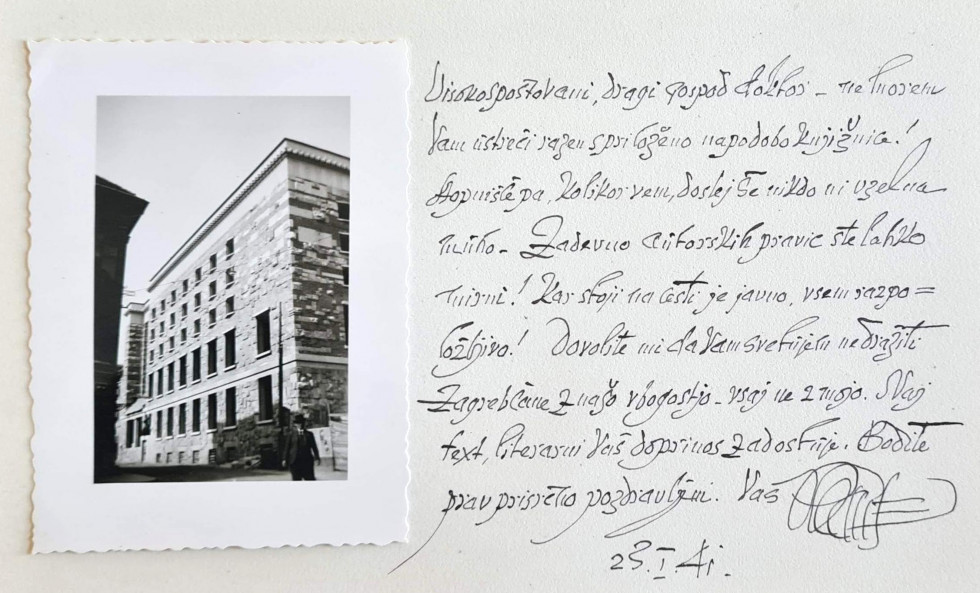 Visokospoštovani, dragi gospod doktor – ne morem
Vam ustreči razen s priloženo napodobo knjižnice!
Dopuščepa, kolikor vem, doslej še nikdo ni vzel na
muho – Zadevno autorskih pravic ste lahko
mirni! Kar stoji na cesti je javno, vsem razpo=
ložljivo! Dovolite mi da Vam svetujem ne dražiti
Zagrebčane z našo vbogostjo – vsaj ne z mojo. Naj
text, literarni Vaš doprinos zadostuje. Bodite
prav prisrčno pozdravljeni. Vaš
23. I 41.